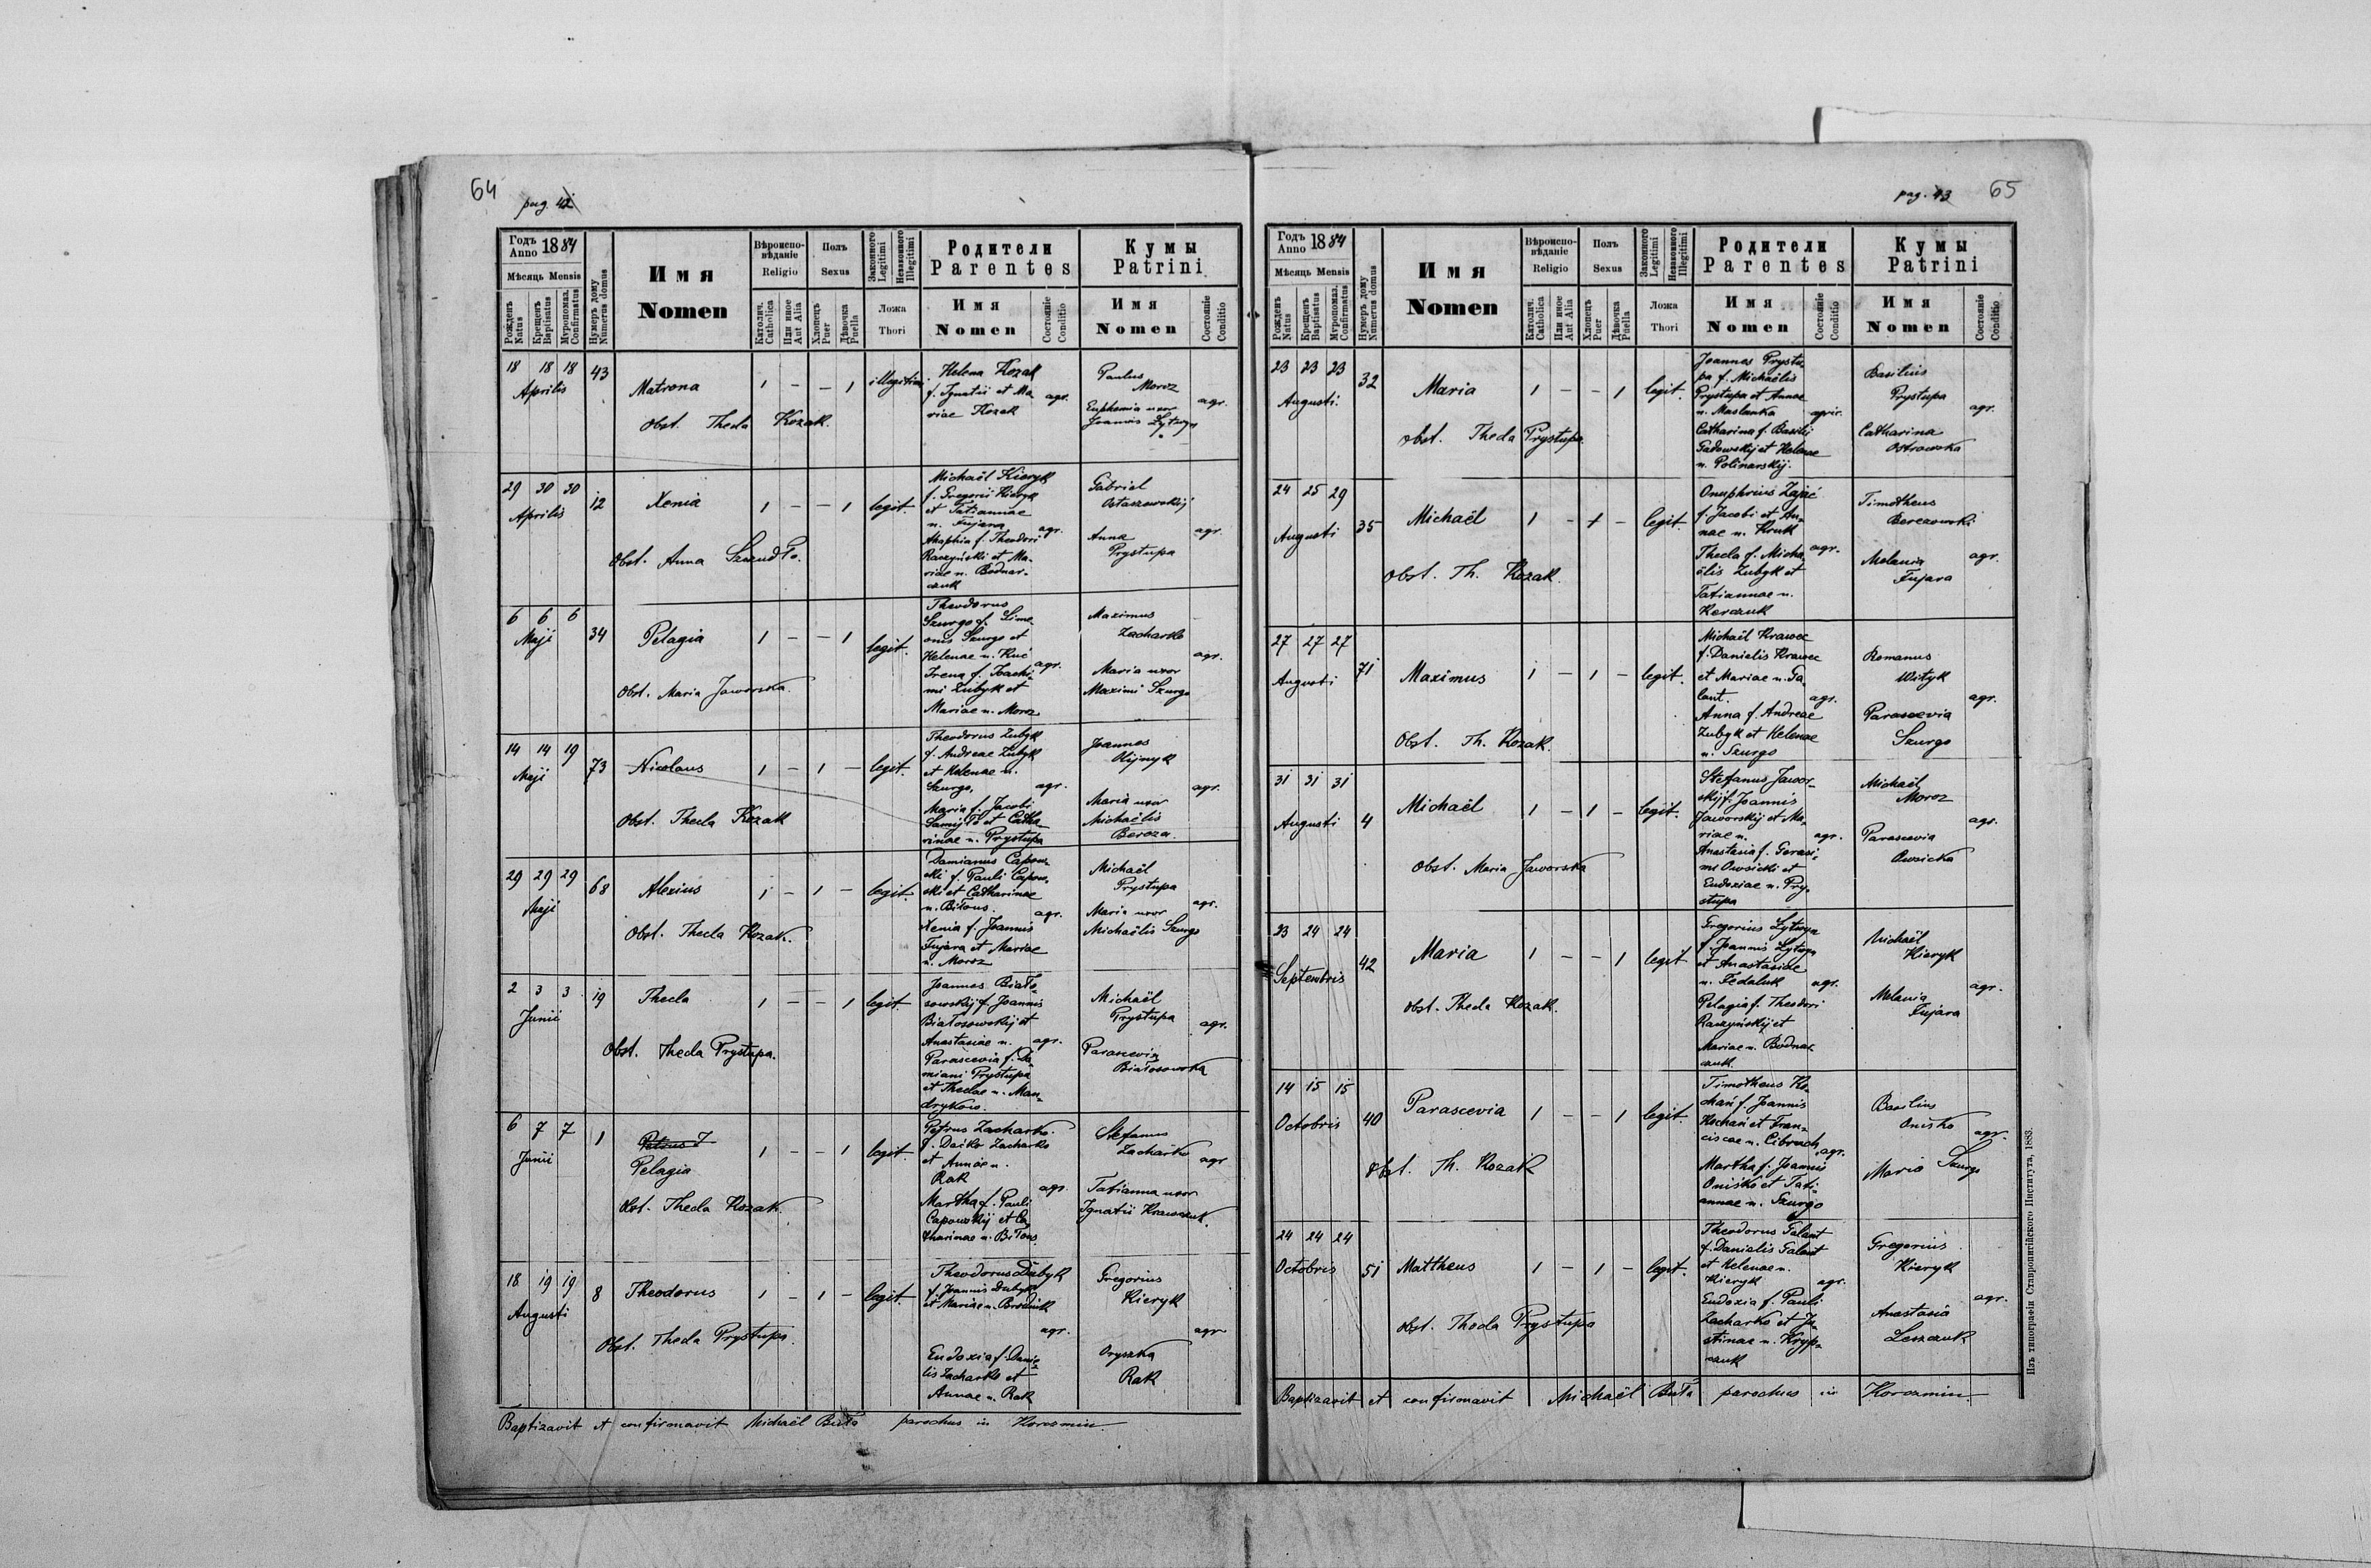 64
pag. 42
Годъ Anno 1884
Мѣсяць Mensis
Рожденъ Natus
Крещенъ Baptisatus
Муропомаз. Confirmatus
Нумеръ дому Numerus domus
Имя
Nomen
Вѣроиспо-
вѣданіе
Religio
Католич. Catholica
Или иное Aut Alia
Полъ
Sexus
Хлопець Puer
Дѣвочка Puella
Законного Legitimi
Незаконного Illegitimi
Ложа
Thori
Родители
Parentes
Имя
Nomen
Состояніе Conditio
Кумы
Patrini
Имя
Nomen
Состояніе Conditio
18 18 18
Aprilis
43
Matrona
Obst. Thecla Kozak.
1 - - 1
illegitimi
Helena Kozak
f. Ignatii et Ma-
riae Kozak
agr.
Paulus
Moroz
Euphemia uxor
Joannis Lytwyn
agr.
29 30 30
Aprilis
12
Xenia
Obst. Anna Szczudło.
1 - - 1
legit.
Michaël Kieryk
f. Gregorii Kieryk
et Tatiannae
n. Fujara
agr.
Akaphia f. Theodori
Raczyński et Ma-
riae n. Bodnar-
czuk
Gabriel
Ostaszewskij
Anna
Prystupa
agr.
6 6 6
Maji
34
Pelagia
Obst. Maria Jaworska.
1 - - 1
legit.
Theodorus
Szurgo f. Sime-
onis Szurgo et
Helenae n. Kuć
agr.
Irena f. Joachi-
mi Zubyk et
Mariae n. Moroz
Maximus
Zacharko
Maria uxor
Maximi Szurgo
agr.
14 14 19
Maji
73
Nicolaus
Obst. Thecla Kozak
1 - 1 -
legit.
Theodorus Zubyk
f. Andreae Zubyk
et Helenae n.
Szurgo,
agr.
Maria f. Jacobi
et Catha-
rinae n. Prystupa
Joannes
Kijnyk
Maria uxor
Michaëlis
Bereza
agr.
29 29 29
Maji
68
Alexius
Obst. Thecla Kozak.
1 - 1 -
legit.
Damianus Capow-
ski f. Pauli Capow-
ski et Catharinae
n. Biłous.
agr.
Xenia f. Joannis
Fujara et Mariae
n. Moroz
Michaël
Prystupa
Maria uxor
Michaëlis Szurgo
agr.
2 3 3
Junii
19
Thecla
Obst. Thecla Prystupa.
1 - - 1
legit.
Joannes Biało-
sowskij f. Joannis
Białosowskij et
Anastasiae n.
agr.
Parascevia f. Da-
miani Prystupa
et Theclae n. Man-
drykow.
Michaël
Prystupa
Parascevia
Białosowska
agr.
6 7 7
Junii
1
Petrus Z
Pelagia
Obst. Thecla Kozak.
1 - - 1
legit.
Petrus Zacharko
f. Dańko Zacharko
et Annae n.
Rak
agr.
Martha f. Pauli
Capowskij et Ca-
tharinae n. Biłous
Stefanus
Zacharko
agr.
Tatianna uxor
Ignatii Krawczuk.
18 19 19
Augusti
8
Theodorus
Obst. Thecla Prystupa.
1 - 1 -
legit.
Theodorus Dubyk
f. Joannis Dubyk
et Mariae n. Brodnik
agr.
Eudoxia f. Danie-
lis Zacharko et
Annae n. Rak
Gregorius
Kieryk
Oryszka
Rak
agr.
Baptizavit et confirmavit Michaël Buła parochus in Korosmin.
pag. 43
65
Годъ Anno 1884
Мѣсяць Mensis
Рожденъ Natus
Крещенъ Baptisatus
Муропомаз. Confirmatus
Нумеръ дому Numerus domus
Имя
Nomen
Вѣроиспо-
вѣданіе
Religio
Католич. Catholica
Или иное Aut Alia
Полъ
Sexus
Хлопець Puer
Дѣвочка Puella
Законного Legitimi
Незаконного Illegitimi
Ложа
Thori
Родители
Parentes
Имя
Nomen
Состояніе Conditio
Кумы
Patrini
Имя
Nomen
Состояніе Conditio
23 23 23
Augusti.
32
Maria
obst. Thecla Prystupa
1 - - 1
legit.
Joannes Prystu-
pa f. Michaëlis
Prystupa et Annae
n. Maslanka
agric.
Catharina f. Basilii
Gadowskij et Helenae
n. Polinarskij.
Basilius
Prystupa
Catharina
Ostrowska
agr.
24 25 29
Augusti
35
Michaël
Obst. Th. Kozak.
1 - 1 -
legit.
Onuphrius Zajać
f. Jacobi et An-
nae n. Kruk
agr.
Thecla f. Micha-
ëlis Zubyk et
Tatiannae n.
Kerczuk
Timotheus
Berezowski
Melania
Fujara
agr.
27 27 27
Augusti
71
Maximus
Obst. Th. Kozak.
1 - 1 -
legit.
Michaël Krawec
f. Danielis Krawec
et Mariae n. Ga-
lant.
agr.
Anna f. Andreae
Zubyk et Helenae
n. Szurgo
Romanus
Wityk
Parascevia
Szurgo
agr.
31 31 31
Augusti
4
Michaël
Obst. Maria Jaworska
1 - 1 -
legit.
Stefanus Jawor-
skij f. Joannis
Jaworskij et Ma-
riae n.
agr.
Anastasia f. Gerasi-
mi Owsicki et
Eudoxiae n. Pry-
stupa
Michaël
Moroz
Parascevia
Owsicka
agr.
23 24 24
Septembris
42
Maria
obst. Thecla Kozak.
1 - - 1
legit
Gregorius Lytwyn
f. Joannis Lytwyn
et Anastasiae
n. Fedaluk
agr.
Pelagia f. Theodori
Raczyńskij et
Mariae n. Bodnar-
czuk.
Michaël
Kieryk
Melania
Fujara
agr.
14 15 15
Octobris
40
Parascevia
Obst. Th. Kozak
1 - - 1
legit.
Timotheus Ko-
chań f. Joannis
Kochań et Fran-
ciscae n. Cibruch
agr.
Martha f. Joannis
Oniśko et Tati-
annae n. Szurgo
Basilius
Oniśko
Maria Szurgo
agr.
24 24 24
Octobris
51
Mattheus
obst. Thecla Prystupa
1 - 1 -
legit.
Theodorus Galant
f. Danielis Galant
et Helenae n.
Kieryk
agr.
Eudoxia f. Pauli
Zacharko et Ju-
stinae n. Kryp-
czuk
Gregorius
Kieryk
Anastasia
Leszczuk
agr.
Baptizavit et confirmavit Michaël Buła parochus in Korosmin
Изъ типографіи Ставропигійского Института, 1883.